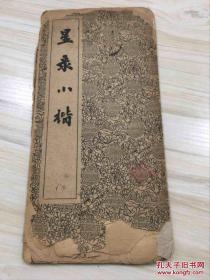 星录小楷
孔夫子旧书网